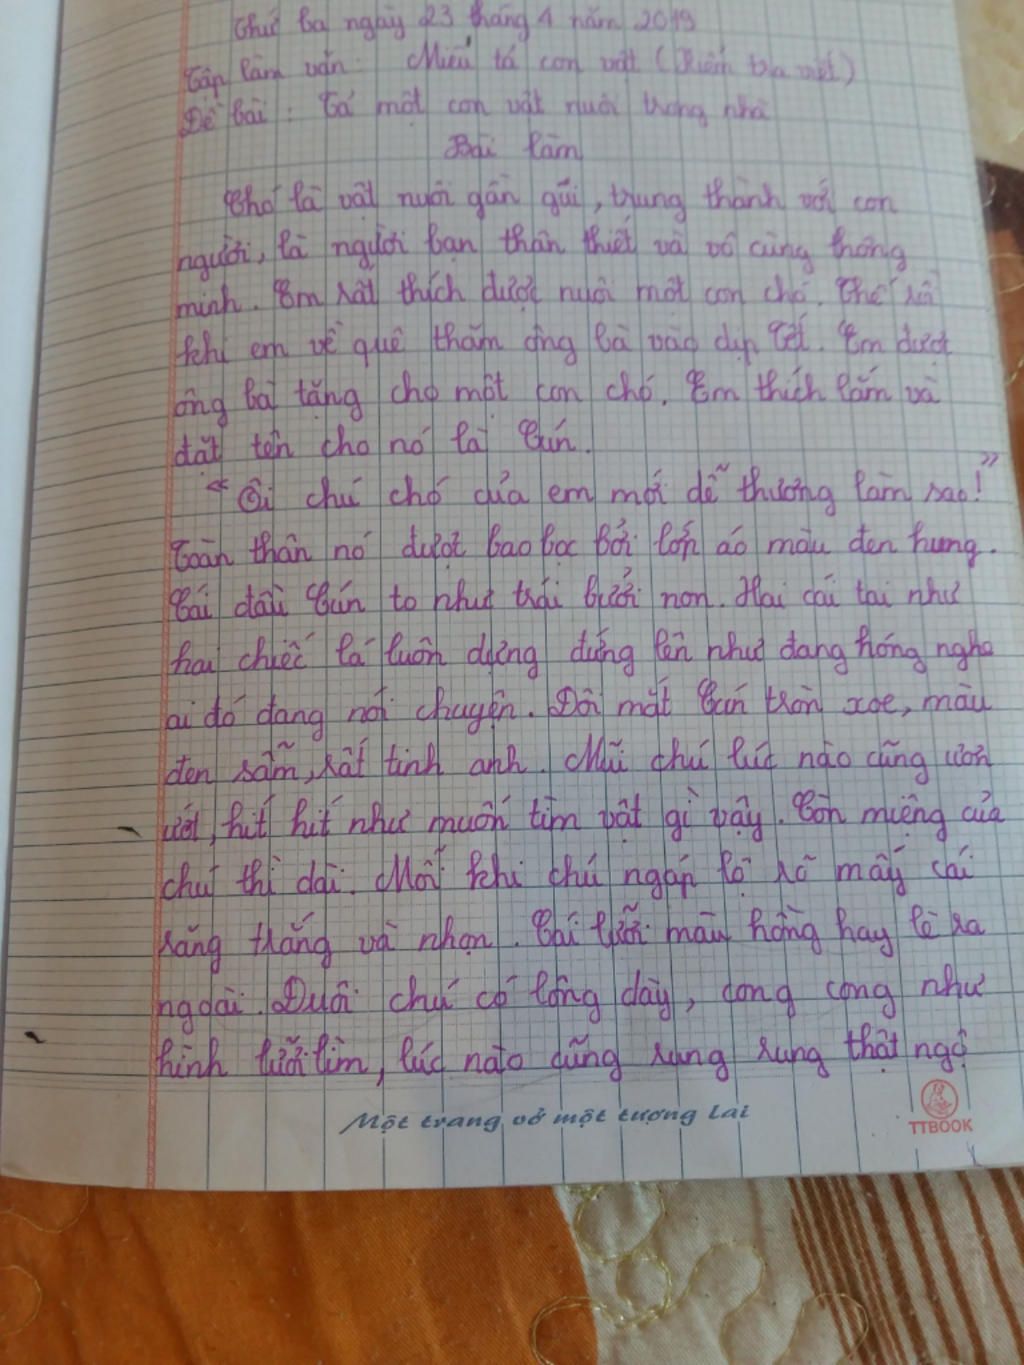 Thứ ba ngày 23 tháng 4 năm 2019
Tập làm văn: Miêu tả con vật (Kiểm tra viết)
Đề bài: Tả một con vật nuôi trong nhà
Bài làm
Chó là vật nuôi gần gũi, trung thành với con
người, là người bạn thân thiết và vô cùng thông
minh. Em rất thích được nuôi một con chó. Thế rồi
khi em về quê thăm ông bà vào dịp Tết. Em được
ông bà tặng cho một con chó. Em thích lắm và
đặt tên cho nó là Cún.
"Ôi chú chó của em mới dễ thương làm sao!"
Toàn thân nó được bao bọc bởi lớp áo màu đen hung.
Cái đầu Cún to như trái bưởi non. Hai cái tai như
hai chiếc lá luôn dựng đứng lên như đang hóng nghe
ai đó đang nói chuyện. Đôi mắt Cún tròn xoe, màu
đen sẫm, rất tinh anh. Mũi chú lúc nào cũng ươn
ướt, hít hít như muốn tìm vật gì vậy. Còn miệng của
chú thì dài. Mỗi khi chú ngáp lộ rõ mấy cái
răng trắng và nhọn. Cái lưỡi màu hồng hay lè ra
ngoài. Đuôi chú có lông dày, cong cong như
hình lưỡi liềm, lúc nào cũng rung rung thật ngộ
Một trang vở một tương lai
TTBOOK